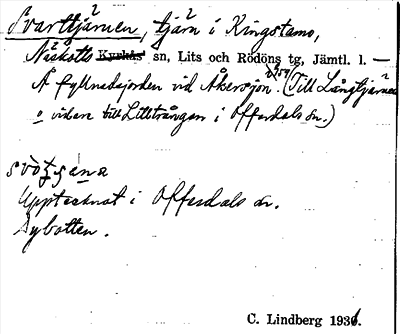 Svarttjärnen, tjärn i Kingstamo,
Näskotts Kyrkås sn, Lits och Rödöns tg, Jämtl. l. —
Å fyllnadsjorden vid Åkersjön. (Till Långtjärnen
o vidare till Litlträngen i Offerdals sn.)
Upptecknat i Offerdals sn.
Bybotten.
C. Lindberg 1936.